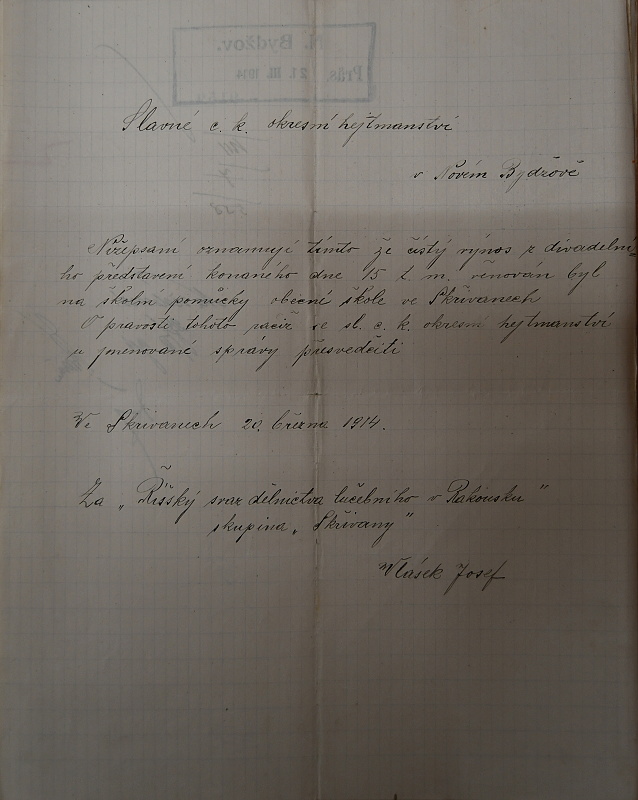 N. Bydžov.
Präs. 21. III. 1914
Slavné c. k. okresní hejtmanství
v Novém Bydžově
Nížepsaní oznamují tímto že čistý výnos z divadelní-
ho představení konaného dne 15 t. m. věnován byl
na školní pomůcky obecné škole ve Skřivanech
O pravosti tohoto račiž se sl. c. k. okresní hejtmanství
u jmenované správy přesvědčiti
Ve Skřivanech 20. března 1914.
Za „Říšský svaz dělnictva lučebního v Rakousku“
skupina „Skřivany“
Vlásek Josef